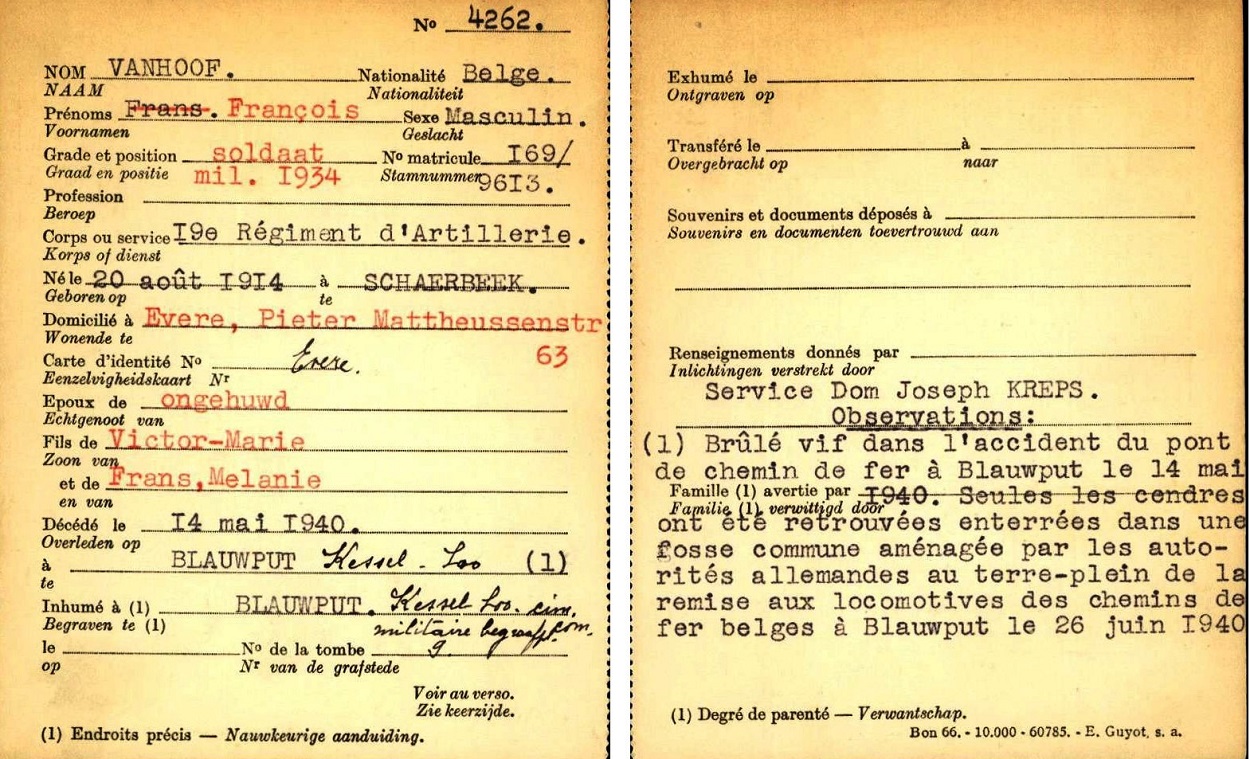 No 4262.
NOM VANHOOF. Nationalité Belge.
NAAM Nationaliteit
Prénoms Frans. François Sexe Masculin.
Voornamen Geslacht
Grade et position soldaat No matricule I69/
Graad en positie mil. I934 Stamnummer 96I3.
Profession
Beroep
Corps ou service I9e Régiment d'Artillerie.
Korps of dienst
Né le 20 août I9I4 à SCHAERBEEK.
Geboren op te
Domicilié à Evere, Pieter Mattheussenstr
Wonende te
63
Carte d'identité No Evere.
Eenzelvigheidskaart Nr
Epoux de ongehuwd
Echtgenoot van
Fils de Victor-Marie
Zoon van
et de Frans,Melanie
en van
Décédé le I4 mai I940.
Overleden op
à BLAUWPUT Kessel-Loo (1)
te
Inhumé à (1) BLAUWPUT. Kessel Loo. cim.
Begraven te (1) militaire
le No de la tombe 9.
op Nr van de grafstede
Voir au verso.
Zie keerzijde.
(1) Endroits précis — Nauwkeurige aanduiding.
Exhumé le
Ontgraven op
Transféré le à
Overgebracht op naar
Souvenirs et documents déposés à
Souvenirs en documenten toevertrouwd aan
Renseignements donnés par
Inlichtingen verstrekt door
Service Dom Joseph KREPS.
Observations:
(1) Brûlé vif dans l'accident du pont
de chemin de fer à Blauwput le I4 mai
Famille (1) avertie par I940. Seules les cendres
Familie (1) verwittigd door
ont été retrouvées enterrées dans une
fosse commune aménagée par les auto-
rités allemandes au terre-plein de la
remise aux locomotives des chemins de
fer belges à Blauwput le 26 juin I940
(1) Degré de parenté — Verwantschap.
Bon 66. - 10.000 - 60785. - E. Guyot, s. a.